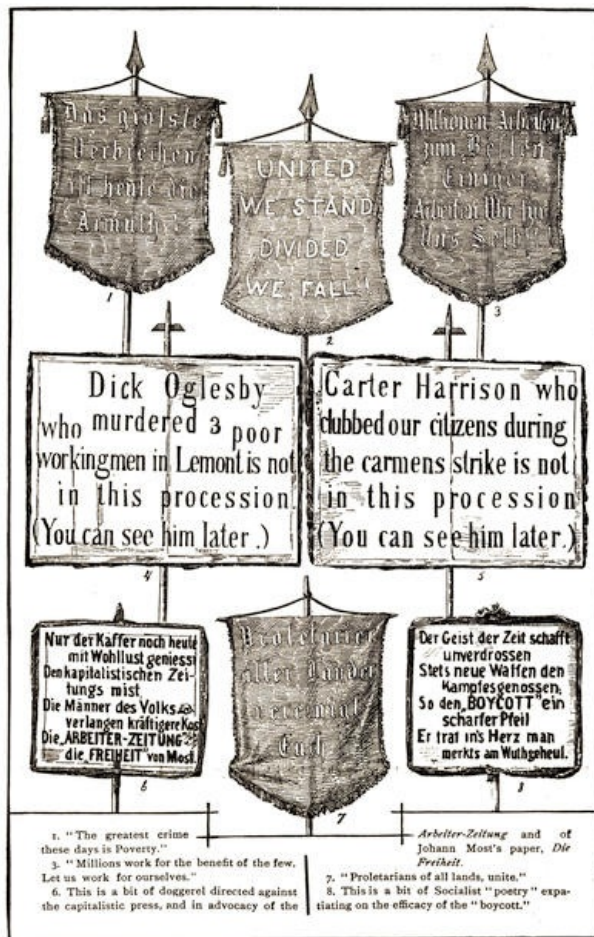 Das größste
Verbrechen
ist heute die
Armuth.
1
UNITED
WE STAND
DIVIDED
WE FALL!
2
Millionen Arbeiten
zum Besten
Einiger
Arbeiten Wir für
Uns Selbst
3
Dick Oglesby
who murdered 3 poor
workingmen in Lemont is not
in this procession
(You can see him later.)
4
Carter Harrison who
clubbed our citizens during
the carmens strike is not
in this procession
(You can see him later.)
5
Nur der Kaffer noch heute
mit Wohllust geniesst
Den kapitalistischen Zei-
tungs mist.
Die Männer des Volks
verlangen kräftigere Kost
Die „ARBEITER-ZEITUNG"
die „FREIHEIT" von Most.
6
Proletarier
aller Länder
vereinigt
Euch
7
Der Geist der Zeit schafft
unverdrossen
Stets neue Waffen den
Kampfesgenossen;
So den „BOYCOTT" ein
scharfer Pfeil
Er traf in's Herz man
merkts am Wuthgeheul.
8
1. "The greatest crime
these days is Poverty."
3. "Millions work for the benefit of the few.
Let us work for ourselves."
6. This is a bit of doggerel directed against
the capitalistic press, and in advocacy of the
Arbeiter-Zeitung and of
Johann Most's paper, Die
Freiheit.
7. "Proletarians of all lands, unite."
8. This is a bit of Socialist "poetry" expa-
tiating on the efficacy of the "boycott."